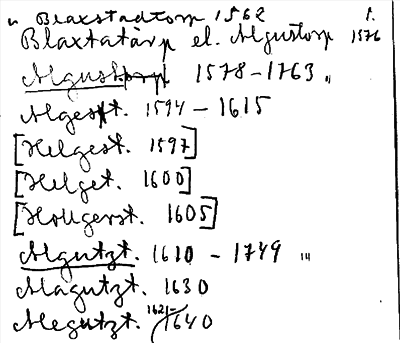 " Blaxstadtorp 1562 f.
Blaxtatärp el. Algustorp 1576
Algustorp 1578-1763 "
Algest. 1594-1615
[Helgest. 1597]
[Helget. 1600]
[Hollgerst. 1605]
Algutzt. 1610 - 1749 "'
Alagutzt. 1630
Alegutzt. 1621-1640